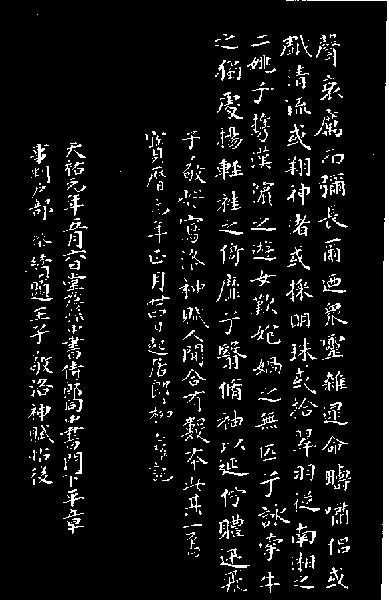 聲哀厲而彌長爾迺衆靈雜遝命疇嘯侶或
戲清流或翔神渚或採明珠或拾翠羽從南湘之
二姚予攜漢濱之遊女歎妃媧之無匹予詠牽牛
之獨處揚輕袿之倚靡予翳脩袖以延佇體迅飛
子敬好寫洛神賦人間合有數本此其一焉
寶曆元年正月廿四日起居郎柳公權記
天祐元年五月六日 中書侍郎同中書門下平章
事判戶部 柳璨題王子敬洛神賦帖後